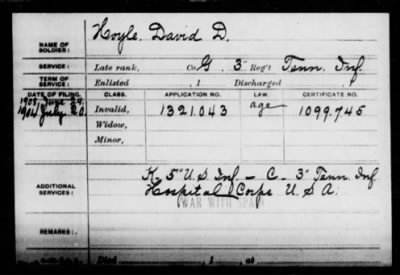 NAME OF SOLDIER: Hoyle, David D.
SERVICE: Late rank, Co. G, 3" Reg't Tenn. Inf.
TERM OF SERVICE: Enlisted , 1 Discharged , 1
DATE OF FILING. CLASS. APPLICATION NO. LAW. CERTIFICATE NO.
1903 June 24
1904 July 20 Invalid, 1321.043 age 1099.745
Widow,
Minor,
ADDITIONAL SERVICES: K 5" U S Inf — C - 3" Tenn Inf
Hospital Corps U.S.A.
WAR WITH SPAIN
REMARKS:
Died , 1 , at